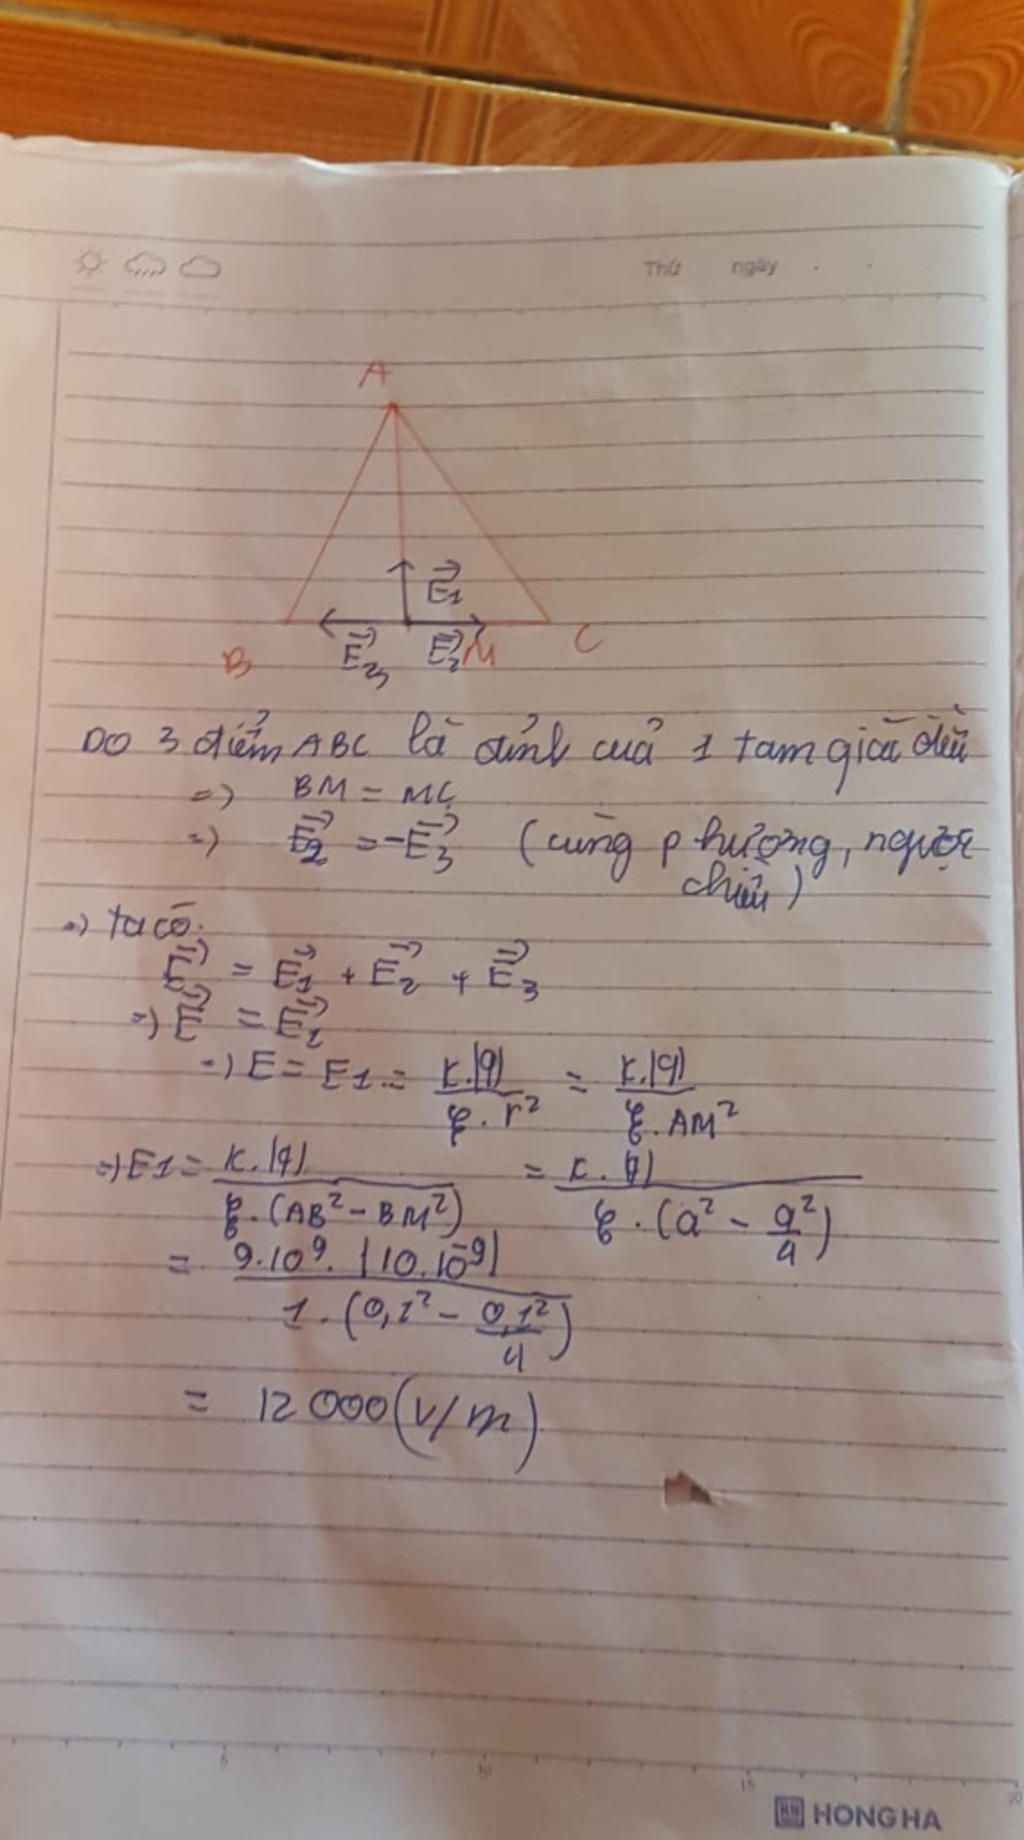 Thứ ngày
A
E1
B E3 E2 M C
DO 3 điểm ABC là đỉnh cuả 1 tam giác đều
=> BM = MC
=> E2 = -E3 (cùng phương, ngược
chiều)
=> ta có.
E = E1 + E2 + E3
=> E = E1
=> E = E1 = K.|q| / ε.r² = K.|q| / ε.AM²
=> E1 = K.|q| / ε.(AB² - BM²) = K.|q| / ε.(a² - a²/4)
= 9.10⁹.|10.10⁻⁹| / 1.(0,1² - 0,1²/4)
= 12000 (V/m)
5 10 15 20
HH HONG HA